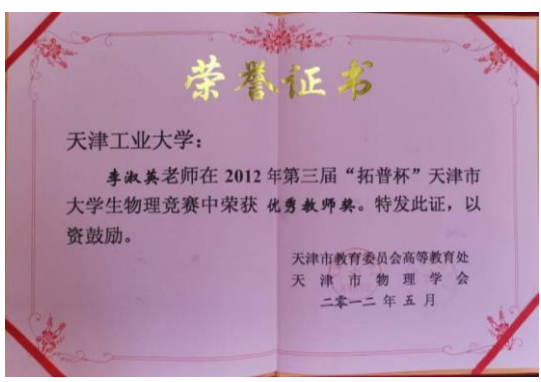 荣誉证书
天津工业大学：
李淑英老师在 2012 年第三届“拓普杯”天津市
大学生物理竞赛中荣获 优秀教师奖。特发此证，以
资鼓励。
天津市教育委员会高等教育处
天津市物理学会
二零一二年五月